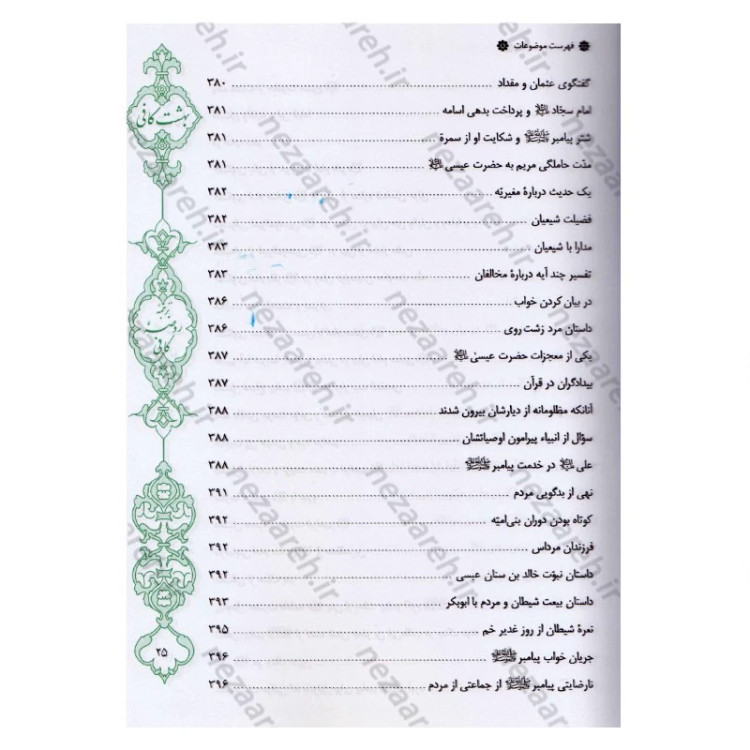 فهرست موضوعات
گفتگوی عثمان و مقداد ۳۸۰
امام سجّاد علیه السلام و پرداخت بدهی اسامه ۳۸۱
شتر پیامبر ﷺ و شکایت او از سمرة ۳۸۱
مدّت حاملگی مریم به حضرت عیسی علیه السلام ۳۸۱
یک حدیث دربارۀ مغیریّه ۳۸۲
فضیلت شیعیان ۳۸۲
مدارا با شیعیان ۳۸۳
تفسیر چند آیه دربارۀ مخالفان ۳۸۳
در بیان کردن خواب ۳۸۶
داستان مرد زشت روی ۳۸۶
یکی از معجزات حضرت عیسیٰ علیه السلام ۳۸۷
بیدادگران در قرآن ۳۸۷
آنانکه مظلومانه از دیارشان بیرون شدند ۳۸۸
سؤال از انبیاء پیرامون اوصیائشان ۳۸۸
علی علیه السلام در خدمت پیامبر ﷺ ۳۸۸
نهی از بدگویی مردم ۳۹۱
کوتاه بودن دوران بنی‌امیّه ۳۹۲
فرزندان مرداس ۳۹۲
داستان نبوّت خالد بن سنان عبسی ۳۹۲
داستان بیعت شیطان و مردم با ابوبکر ۳۹۳
نعرۀ شیطان از روز غدیر خم ۳۹۵
جریان خواب پیامبر ﷺ ۳۹۶
نارضایتی پیامبر ﷺ از جماعتی از مردم ۳۹۶
بهشت کافی
ترجمه
روضه
کافی
۲۵
nezaareh.ir